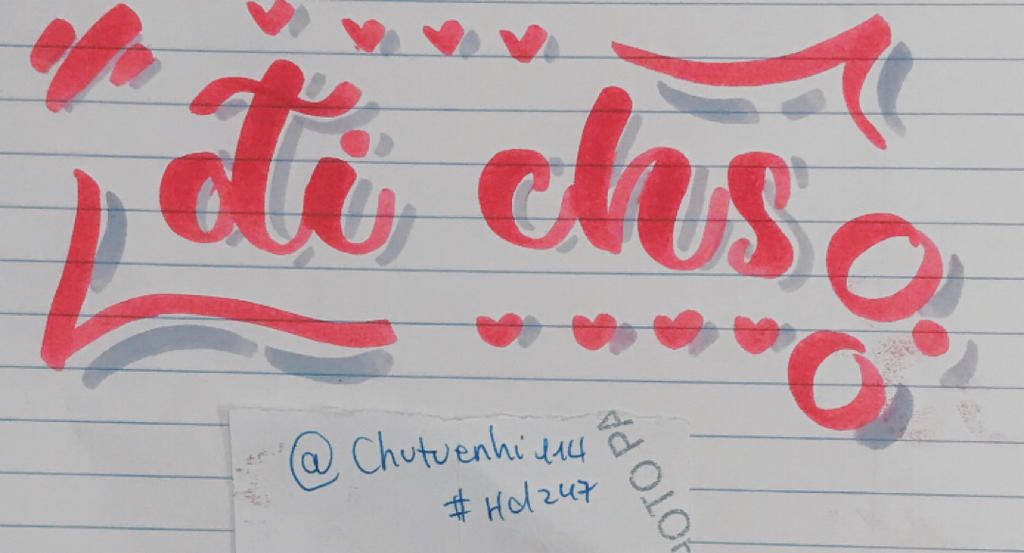 di chs
@Chutuenhi114
#Hd247
OTO PA